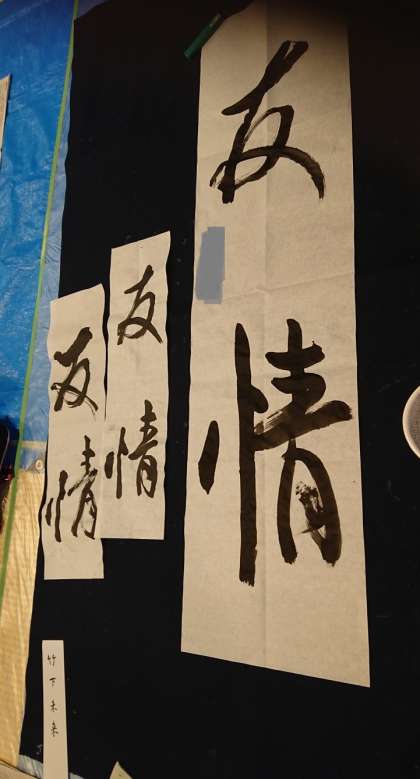 友情
友情
友情
竹下未来